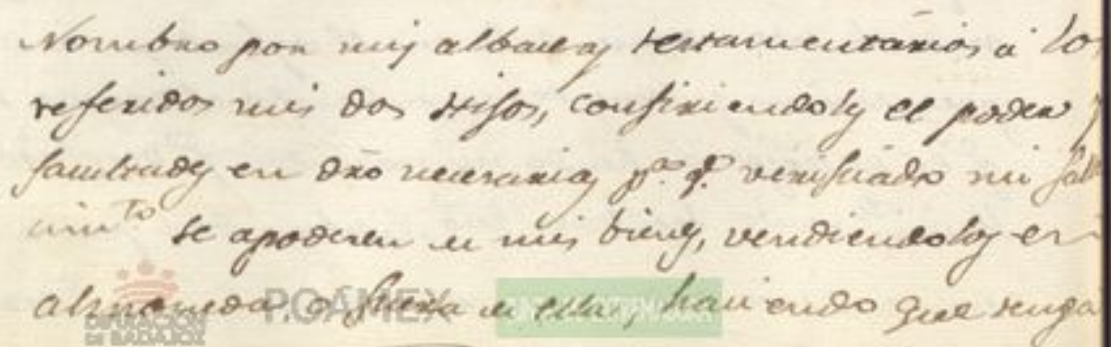 Nombro por mis albaceas testamentarios á los
referidos mis dos Hijos, confiriendoles el poder y
facultades en dró necesarias pª. qª. verificado mi falle
cimto se apoderen de mis bienes, vendiendolos en
almoneda o fuera de ella, haciendo que tenga
DIPUTACIÓN
DE BADAJOZ
P.CÁMEX